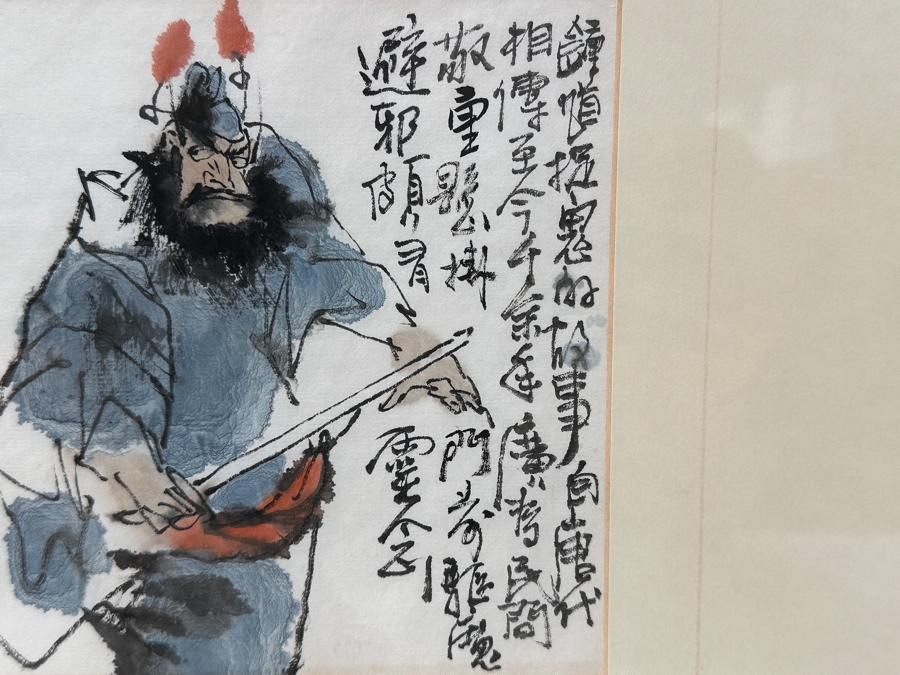 鍾馗捉鬼的故事自唐代
相傳至今千余年廣為民間
敬重懸掛門前驅魔
避邪頗有靈念